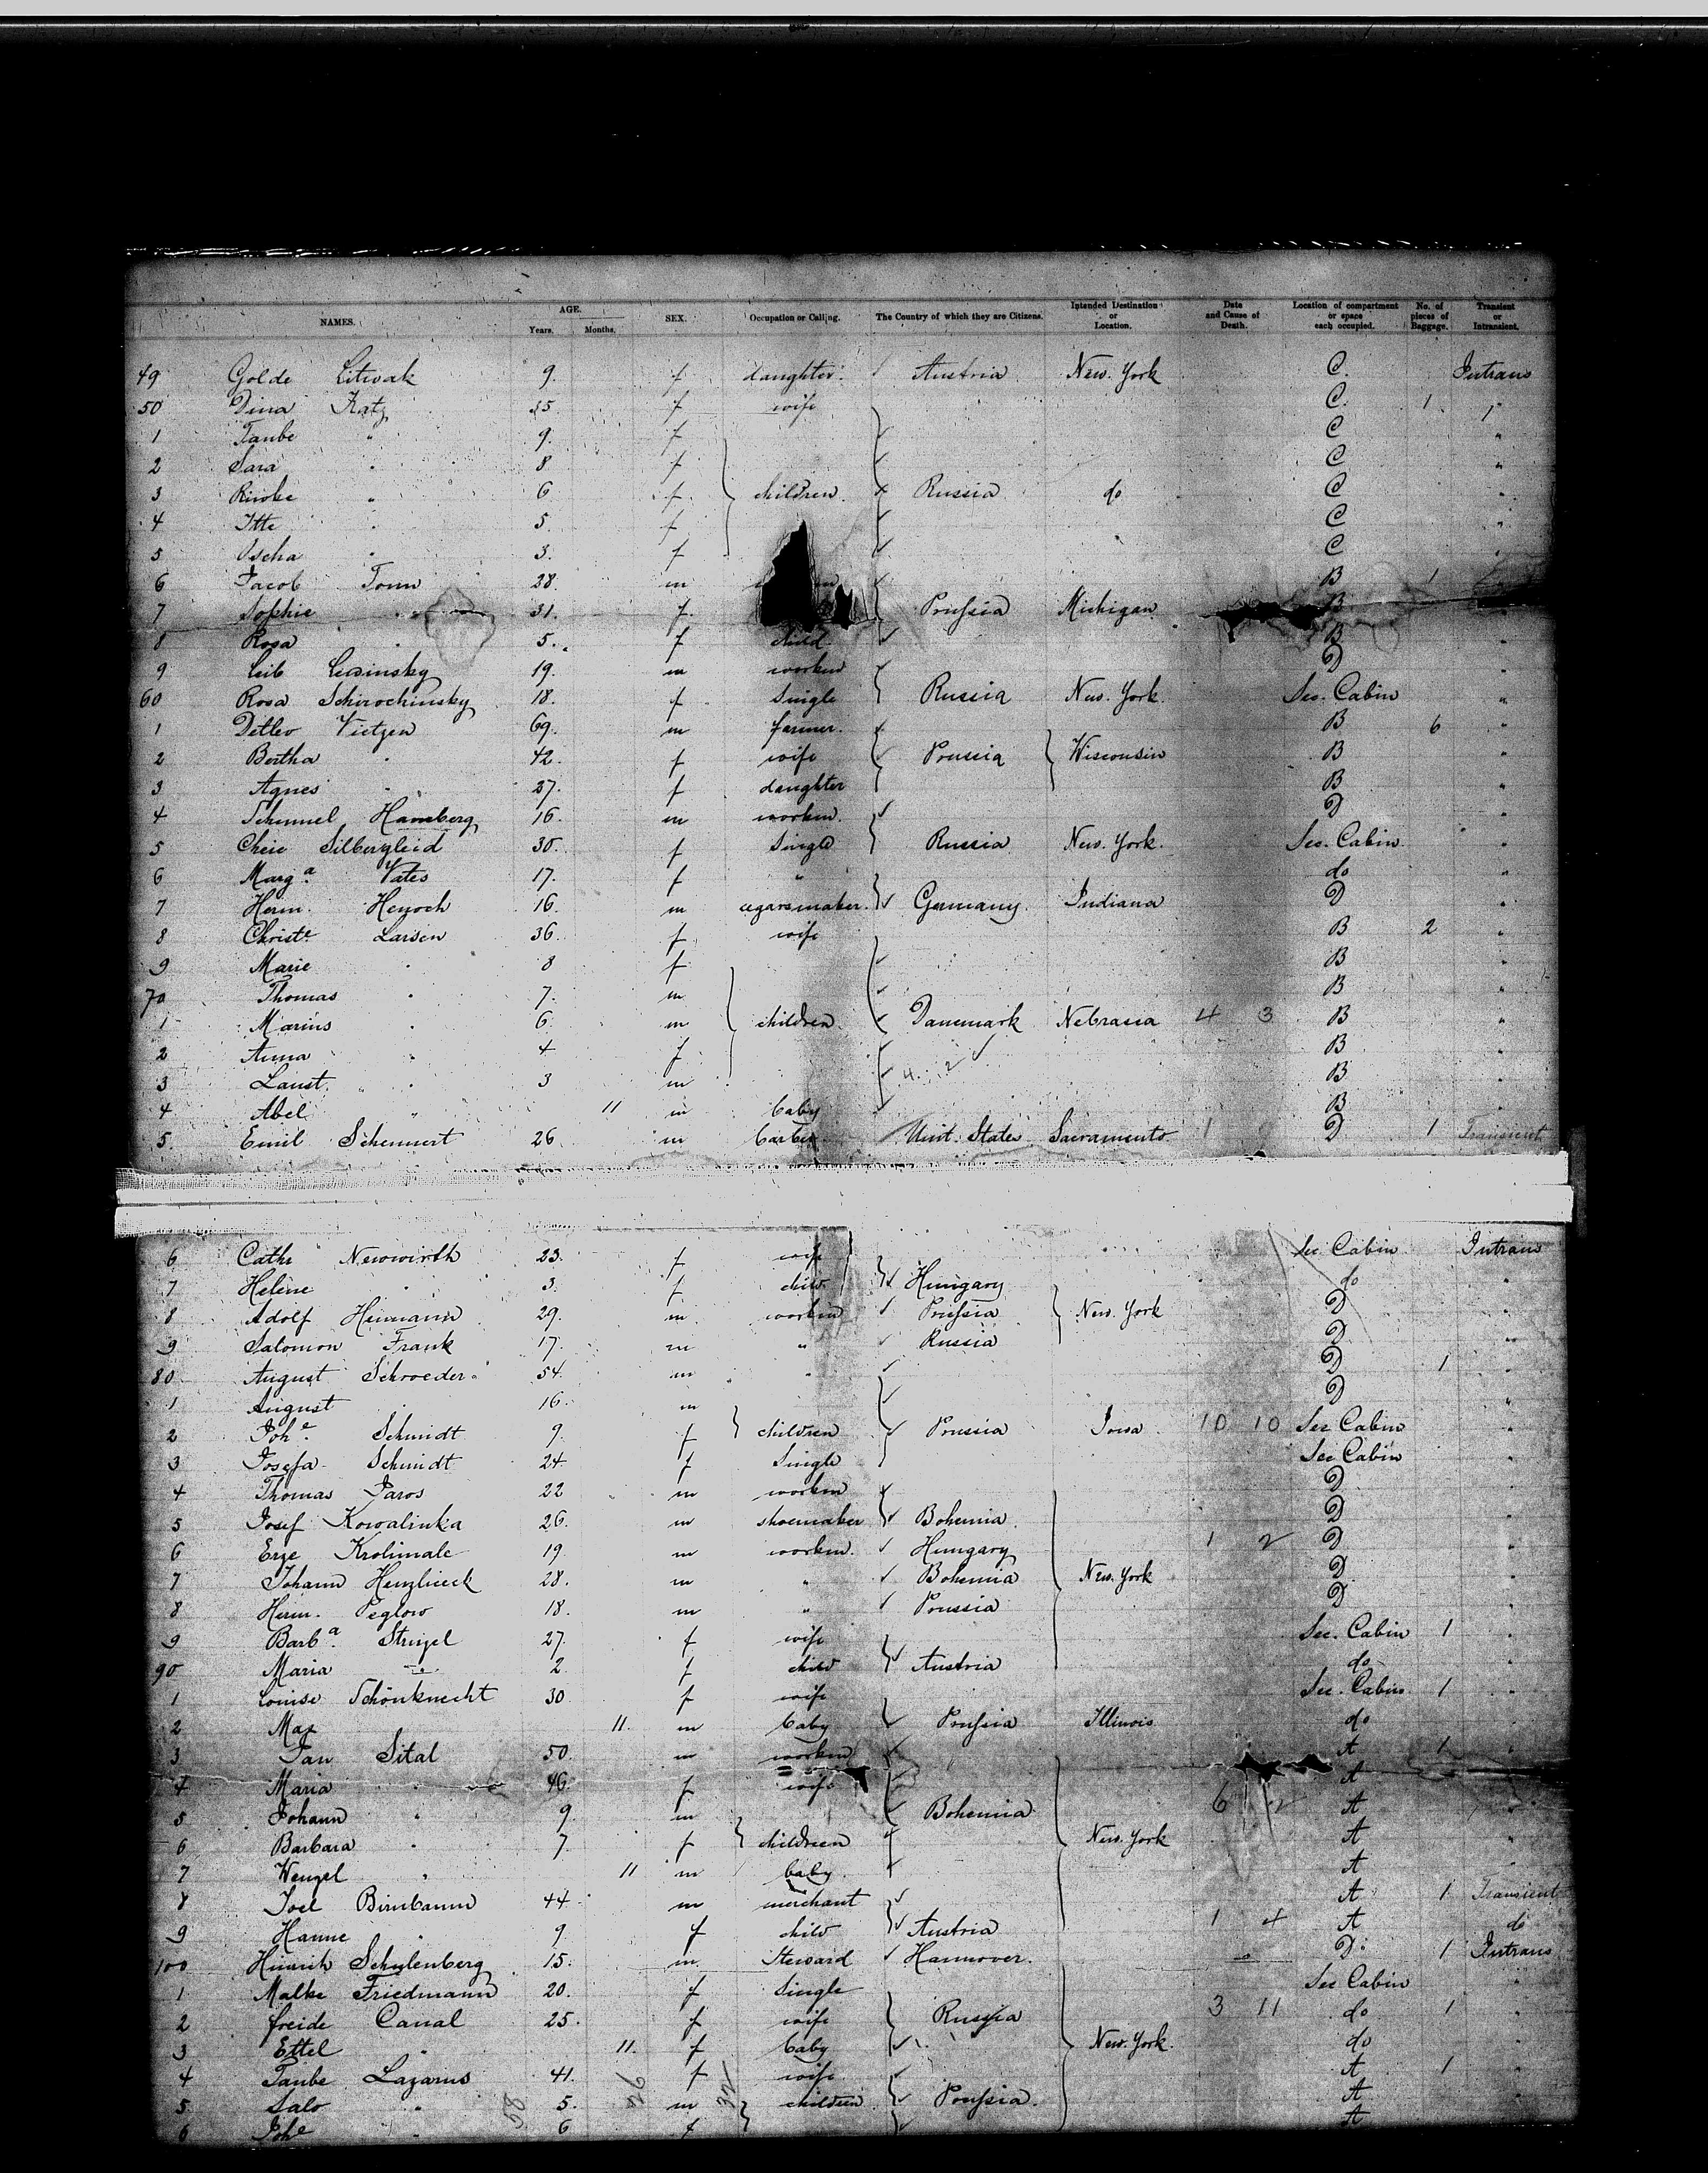 NAMES. AGE. Years. Months. SEX. Occupation or Calling. The Country of which they are Citizens. Intended Destination or Location. Date and Cause of Death. Location of compartment or space each occupied. No. of pieces of Baggage. Transient or Intransient.
49 Golde Litwak 9. f daughter. Austria New. York C. Intrans
50 Dina Katz f wife C. 1 "
1 Taube " 9. f C "
2 Sara " 8 f C "
3 Riwke " 6 f children. Russia do C "
4 Itte " 5. f C "
5 " 3. f C "
6 Jacob Tonn 28. m B 1
7 Sophie " 31. f Prussia Michigan B "
8 Rosa " 5. f child B "
9 Leib Lewinsky 19. m workm D "
60 Rosa Schirochinsky 18. f Single Russia New. York. Sec. Cabin "
1 Detlev Vietzen 69. m farmer. B 6 "
2 Bertha " 42. f wife Prussia Wisconsin B "
3 Agnes " f daughter B "
4 Schmuel Hamberg 16. m workm. D "
5 Cheie Silbergleid 30. f Single Russia New. York. Sec. Cabin "
6 Marg.a Vates 17. f " do "
7 Herm. Henoch 16. m cigarsmaker. Germany Indiana D "
8 Christe. Larsen 36. f wife B 2 "
9 Marie " 8 f B "
70 Thomas " 7. m B "
1 Marius " 6. m children. Danemark Nebrasca 4 3 B "
2 Anna " 4 f B "
3 Laust. " 3 m 4. 2 B "
4 Abel " 11 m baby B "
5. Emil Schennert 26 m barber Unit. States Sacramento 1 D 1 Transient
6 Cathe Newwirth 23. f wife Sec Cabin Intrans
7 Helene " 3. f child Hungary do "
8 Adolf Heimann 29. m workm Prussia New. York D "
9 Salomon Frank 17. m " Russia D "
80 August Schroeder 54. m " D 1 "
1 August 16. m D "
2 Joh.e Schmidt 9. f children Prussia Iowa 10 10 Sec Cabin "
3 Josefa Schmidt 24. f Single Sec Cabin "
4 Thomas Jaros 22 m workm D "
5 Josef Kowalinka 26. m shoemaker Bohemia. D "
6 Krolimale 19. m workm. Hungary 1 2 D "
7 Johann 28. m " Bohemia New. York D "
8 Herm. Peglow 18. m " Prussia D "
9 Barb.a Stripel 27. f wife Sec. Cabin 1 "
90 Maria " 2. f child Austria do "
1 Louise Schönknecht 30 f wife Sec. Cabin 1 "
2 Max 11. m baby Prussia Illinois do "
3 Jan Sital 50. m workm A 1 "
4 Maria " 46. f wife A "
5 Johann " 9. m Bohemia 6 2 A "
6 Barbara " 7. f children New. York A "
7 Wenzel " 11 m baby. A "
8 Joel Birnbaum 44. m merchant A 1 Transient
9 Hanne " 9 f child Austria 1 4 A do
100 Hinrich Schulenberg 15. m. Steward Hannover. D. 1 Intrans
1 Malke Friedmann 20. f Single Sec Cabin "
2 freide Canal 25. f wife Russia 3 11 do 1 "
3 Ettel " 11. f baby New. York. do "
4 Taube Lazarus 41. f wife A 1 "
5. Salo " 5. m children. Prussia. A "
6 Johe " 6 f A "
58 26 32